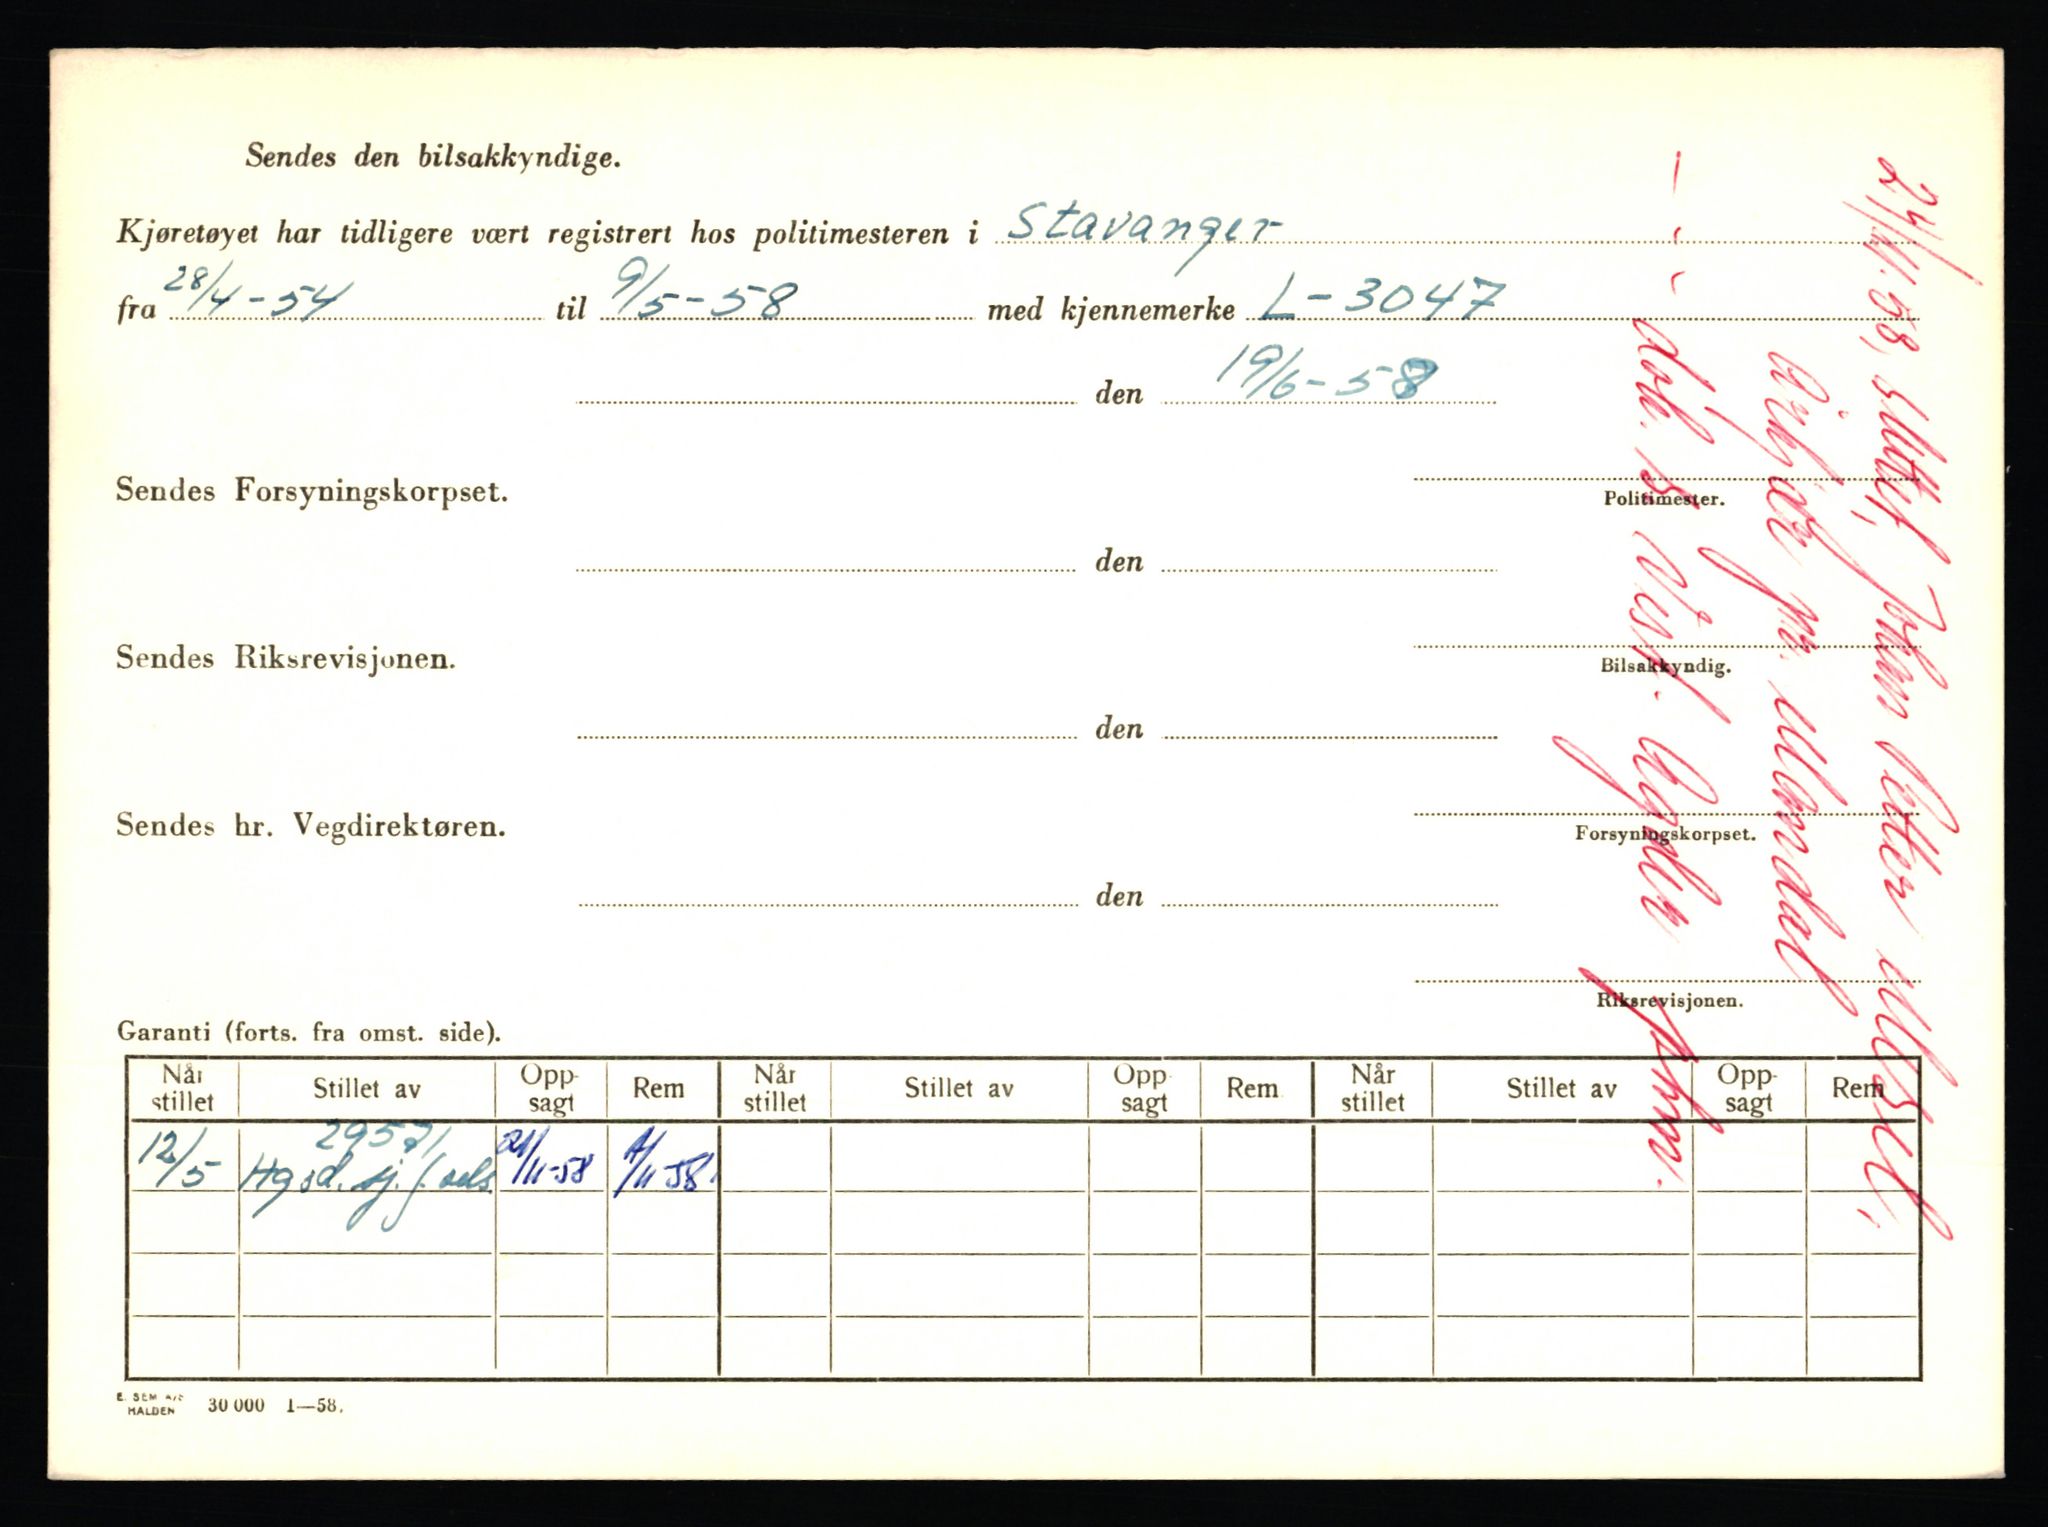 Sendes den bilsakkyndige.
Kjøretøyet har tidligere vært registrert hos politimesteren i Stavanger
fra 28/4-54 til 9/5-58 med kjennemerke L-3047
den 19/6-58
Politimester.
Sendes Forsyningskorpset.
den
Bilsakkyndig.
Sendes Riksrevisjonen.
den
Forsyningskorpset.
Sendes hr. Vegdirektøren.
den
Riksrevisjonen.
Garanti (forts. fra omst. side).
Når stillet Stillet av Opp-sagt Rem Når stillet Stillet av Opp-sagt Rem Når stillet Stillet av Opp-sagt Rem
29571
12/5 Hgsd. sj. 21/11-58 11-58
E. SEM A/S
HALDEN 30 000 1—58.
24/11.58, Slettet, Johan Petter
pr.
Vest-Agder